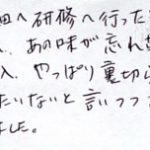 へ研修へ行った
、あの味が忘れ
、やっぱり裏切ら
たいないと言いつつ
した。